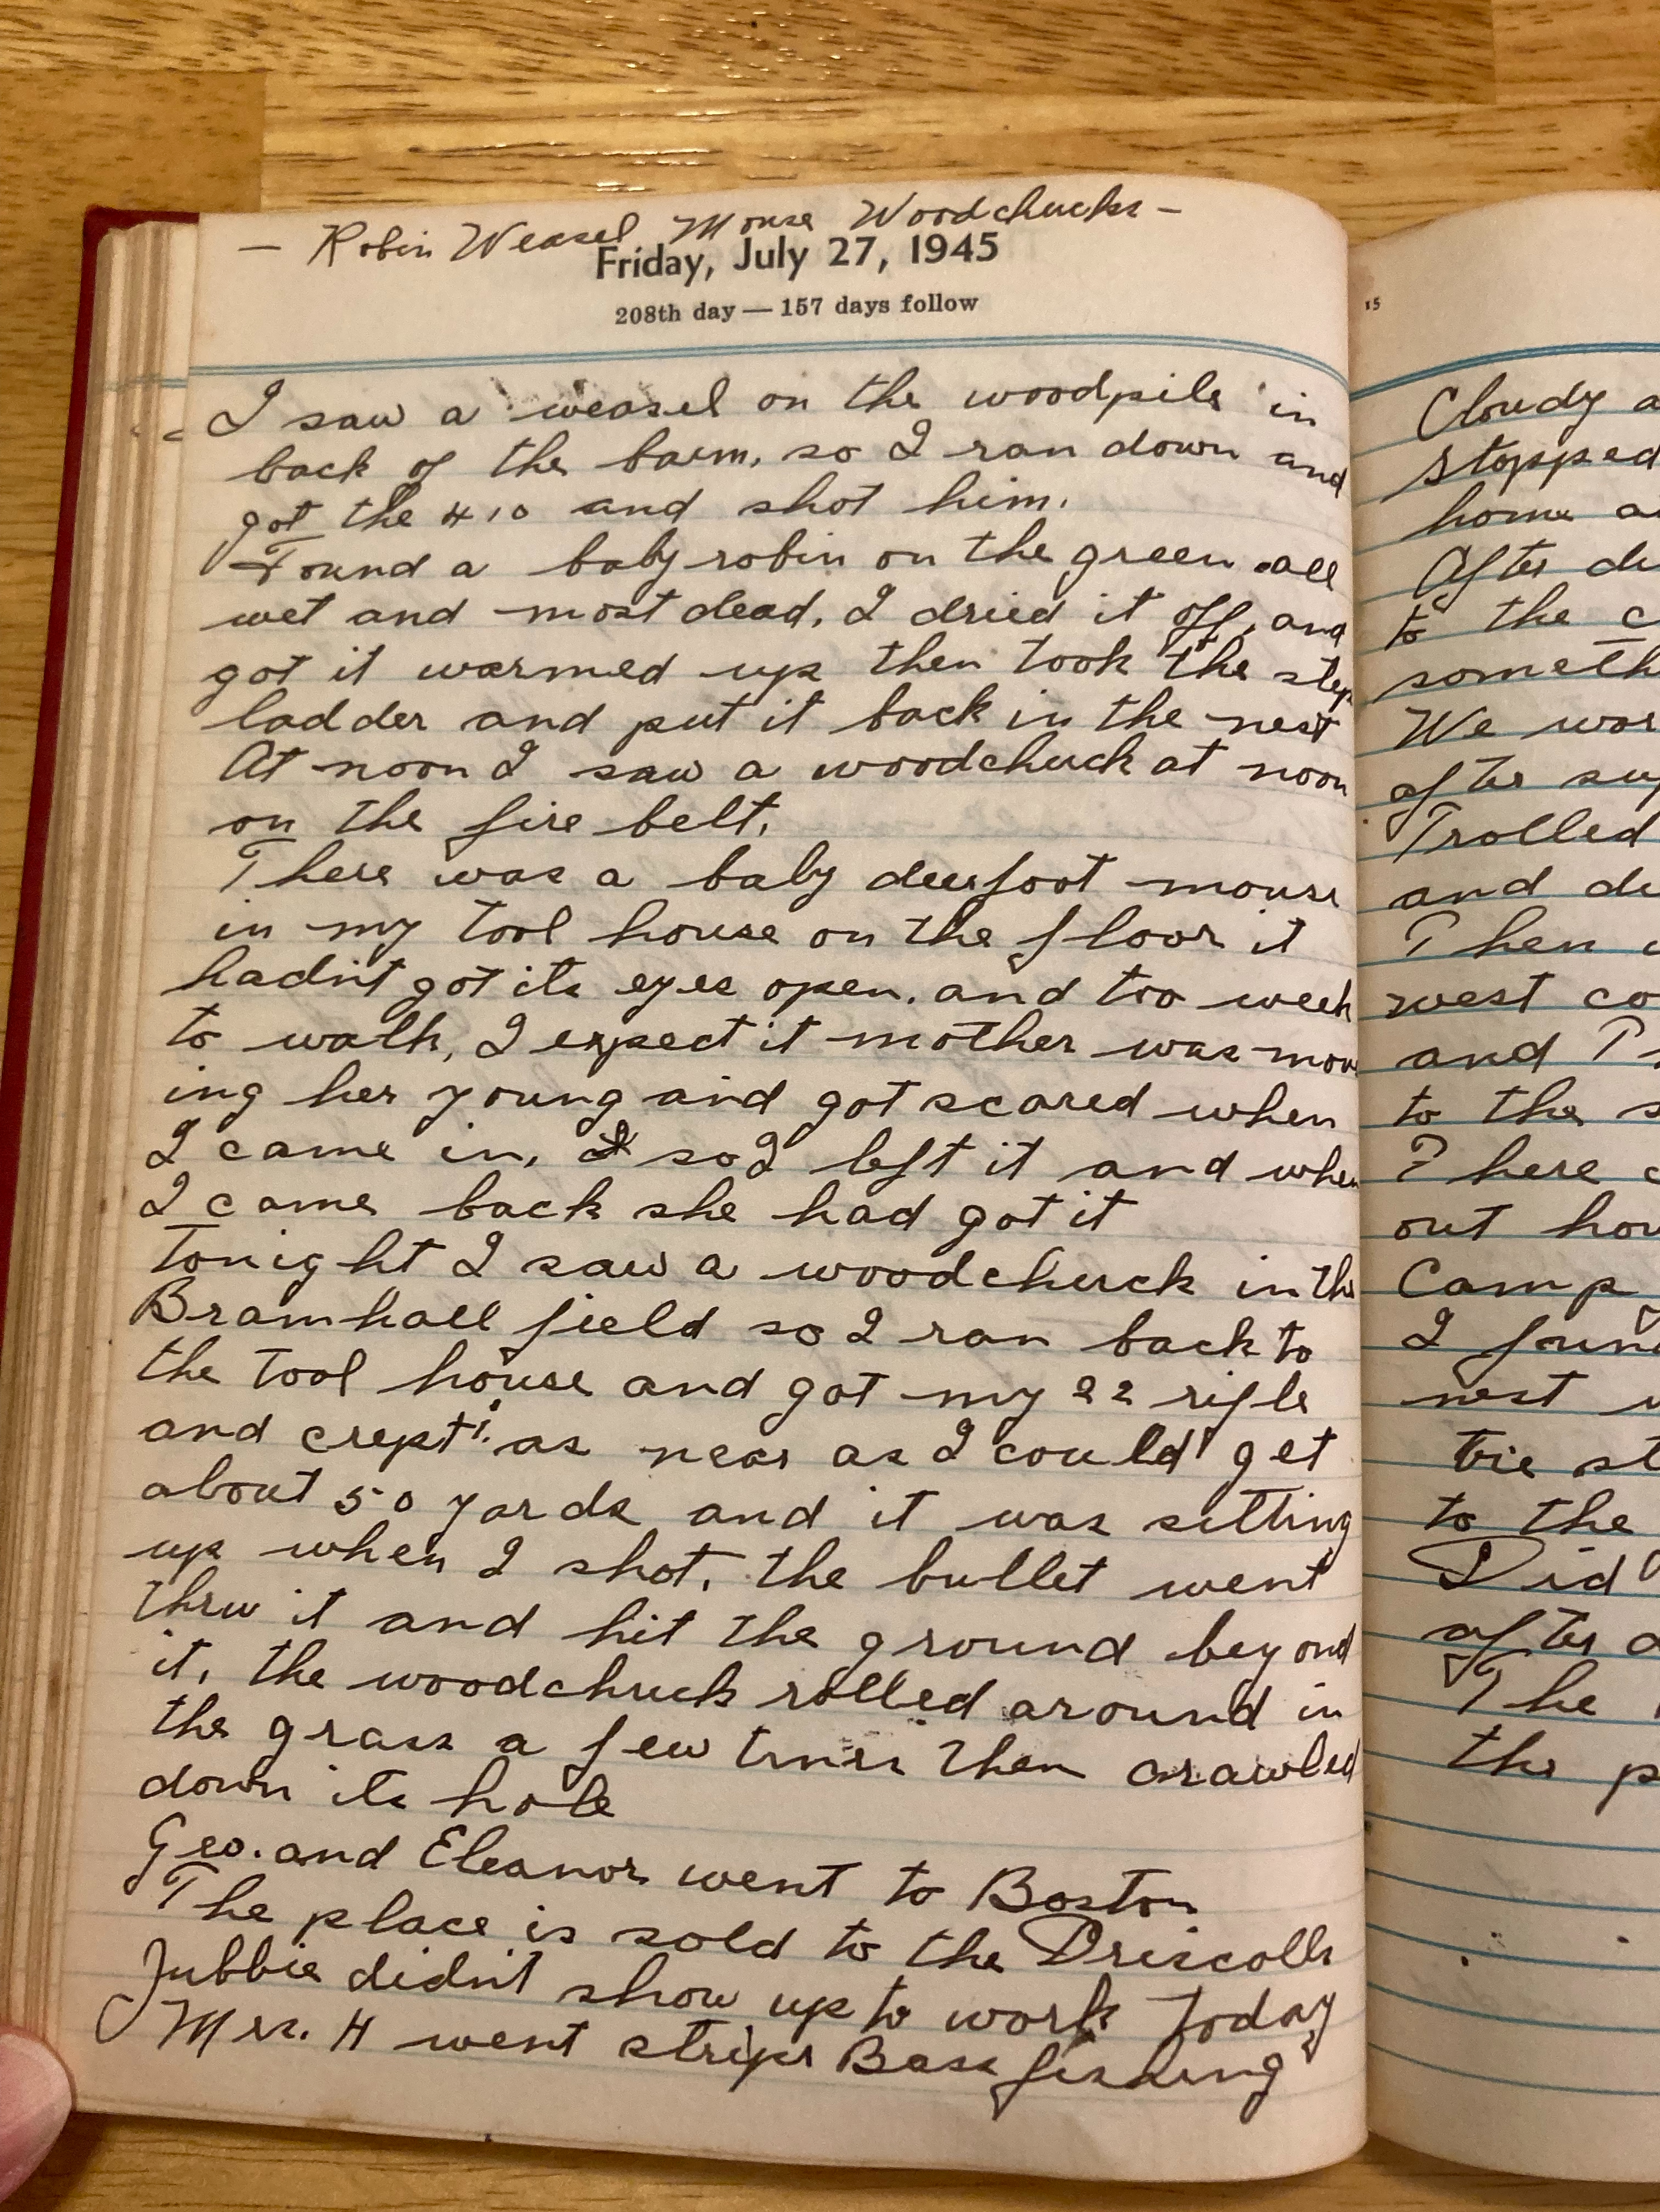 — Robin Weasel Mouse Woodchucks —
Friday, July 27, 1945
208th day — 157 days follow
I saw a weasel on the woodpile in
back of the barn, so I ran down and
got the 410 and shot him.
Found a baby robin on the green all
wet and most dead, I dried it off, and
got it warmed up then took the step
ladder and put it back in the nest
At noon I saw a woodchuck at noon
on the fire belt.
There was a baby deerfoot mouse
in my tool house on the floor it
hadn't got its eyes open. and too week
to walk, I expect it mother was mov
ing her young and got scared when
I came in, so I left it and when
I came back she had got it
Tonight I saw a woodchuck in the
Bramhall field so I ran back to
the tool house and got my 22 rifle
and crept as near as I could get
about 50 yards and it was setting
up when I shot. the bullet went
thru it and hit the ground beyond
it, the woodchuck rolled around in
the grass a few times then crawled
down its hole
Geo. and Eleanor went to Boston
The place is sold to the Driscolls
Jubbie didn't show up to work today
Mrs. H went stripe Bass fishing
15
Cloudy a
stopped
home a
After di
to the c
someth
We wor
after sup
Trolled
and de
Then
west co
and
to the s
There c
out hou
Camp
I foun
nest
tie st
to the
Did
after a
The
the p